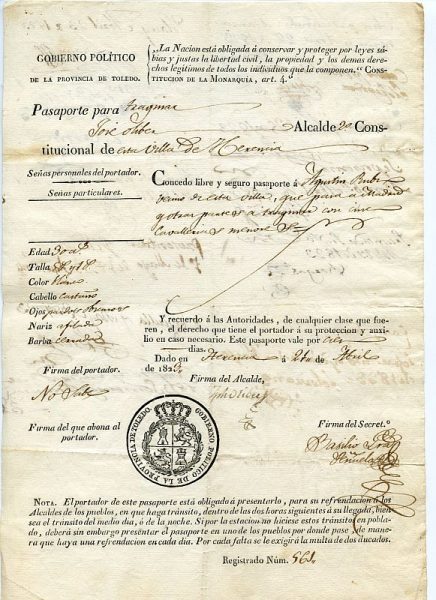 GOBIERNO POLÍTICO
DE LA PROVINCIA DE TOLEDO.
„La Nacion está obligada á conservar y proteger por leyes sábias
y justas la libertad civil, la propiedad y los demas derechos
legítimos de todos los individuos que la componen.“ CONSTITUCION
DE LA MONARQUÍA, art. 4.º
Pasaporte para traginar
José Alcalde 2º Constitucional
de esta Villa de Herencia
Señas personales del portador.
Señas particulares.
Concedo libre y seguro pasaporte á Agustin
de esta villa, que pasa a Madrid
y otros puntos a traginar con
Caballerias menores
Edad 30 a.s
Talla
Color
Cabello castaño
Ojos pardos
Nariz afilada
Barba
Y recuerdo á las Autoridades, de cualquier clase que fueren,
el derecho que tiene el portador á su proteccion y auxilio
en caso necesario. Este pasaporte vale por
dias.
Dado en Herencia á de Abril
de 1823.
Firma del portador.
No Sabe
Firma del Alcalde,
Firma del que abona al
portador.
GOBIERNO POLITICO DE LA PROVINCIA DE TOLEDO.
Firma del Secret.º
Basilio
NOTA. El portador de este pasaporte está obligado á presentarlo, para su refrendacion á los
Alcaldes de los pueblos, en que haga tránsito, dentro de las dos horas siguientes á su llegada, bien
sea el tránsito del medio dia, ó de la noche. Si por la estacion no hiciese estos tránsitos en poblado,
deberá sin embargo presentar el pasaporte en uno de los pueblos por donde pase, de manera
que haya una refrendacion en cada dia. Por cada falta se le exigirá la multa de dos ducados.
Registrado Núm. 561.